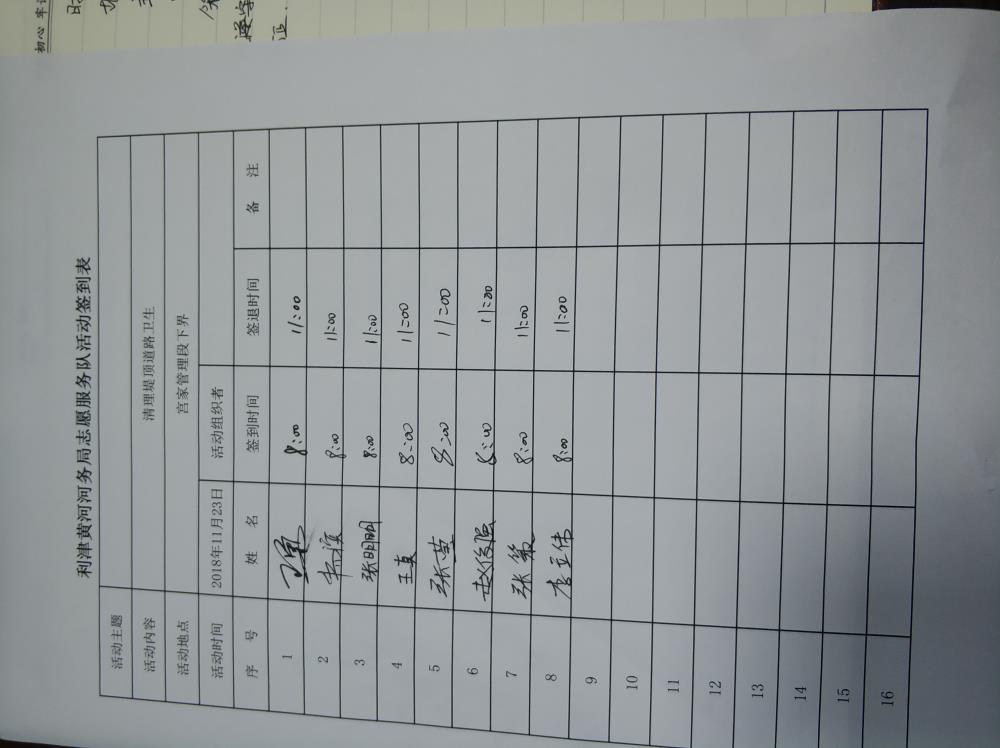 利津黄河河务局志愿服务队活动签到表
活动主题
活动内容 清理堤顶道路卫生
活动地点 宫家管理段下界
活动时间 2018年11月23日 活动组织者
序 号 姓 名 签到时间 签退时间 备 注
1 8:00 11:00
2 8:00 11:00
3 张明明 8:00 11:00
4 王真 8:00 11:00
5 张莹 8:00 11:00
6 赵俊强 8:00 11:00
7 张策 8:00 11:00
8 李正伟 8:00 11:00
9
10
11
12
13
14
15
16
初心 牢记